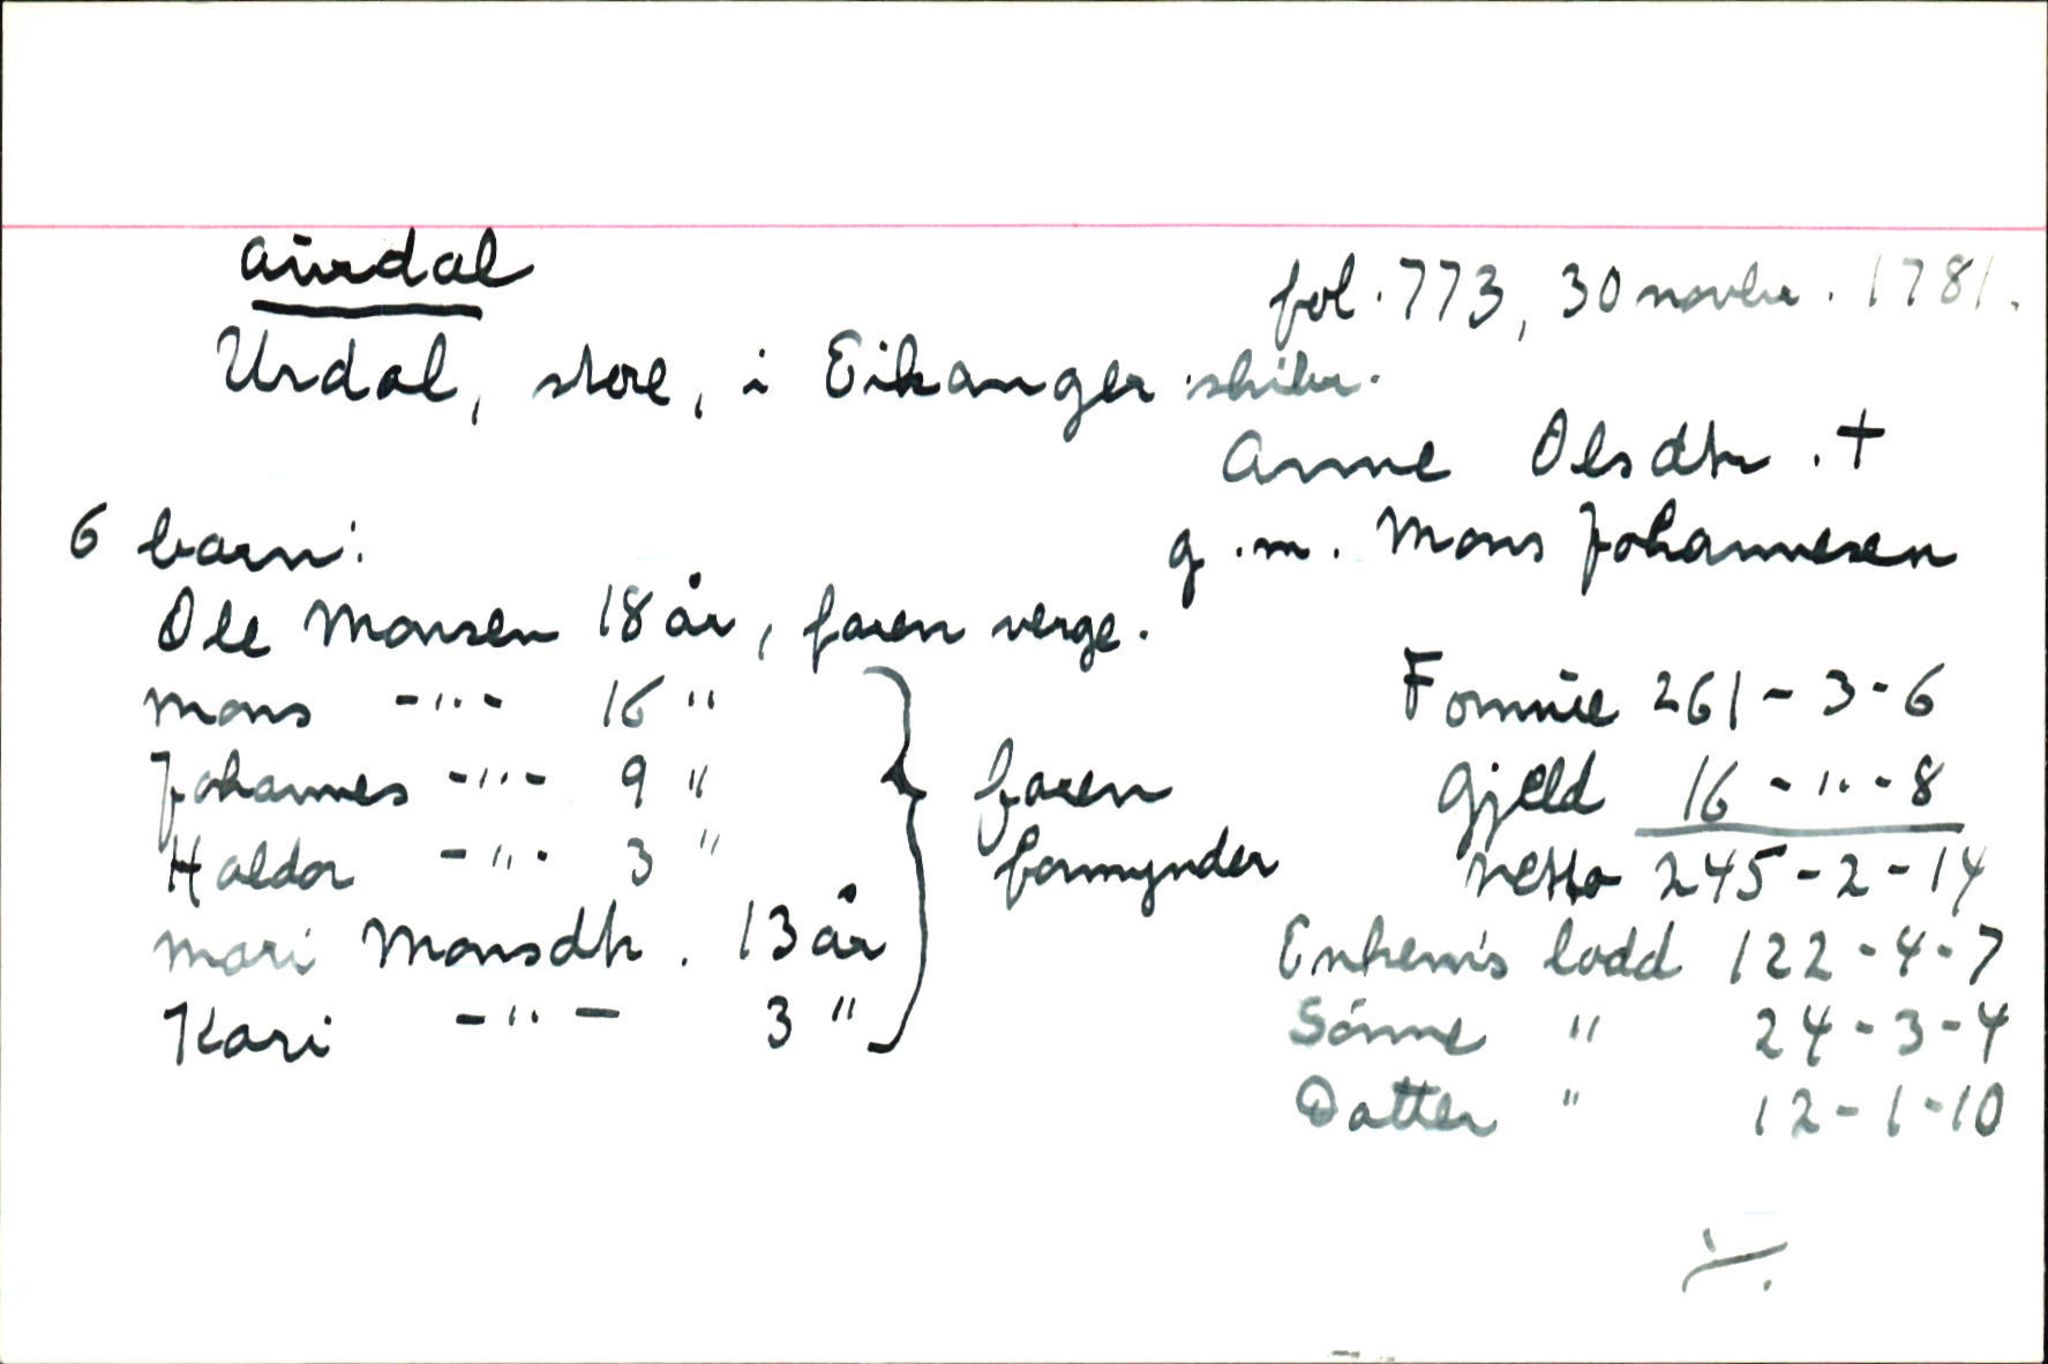 Aurdal
fol. 773, 30 novbr. 1781.
Urdal, store, i Eikanger skibr.
Anne Olsdtr. +
g.m. Mons Johannesen
6 barn:
Ole Monsen 18 år, faren verge.
Mons -"- 16 "
Johannes -"- 9 "
Haldor -"- 3 "
Mari Monsdtr. 13 år
Kari -"- 3 "
faren
formynder
Formue 261-3-6
Gjeld 16-"-8
Netto 245-2-14
Enkem's lodd 122-4-7
Sønne " 24-3-4
Datter " 12-1-10